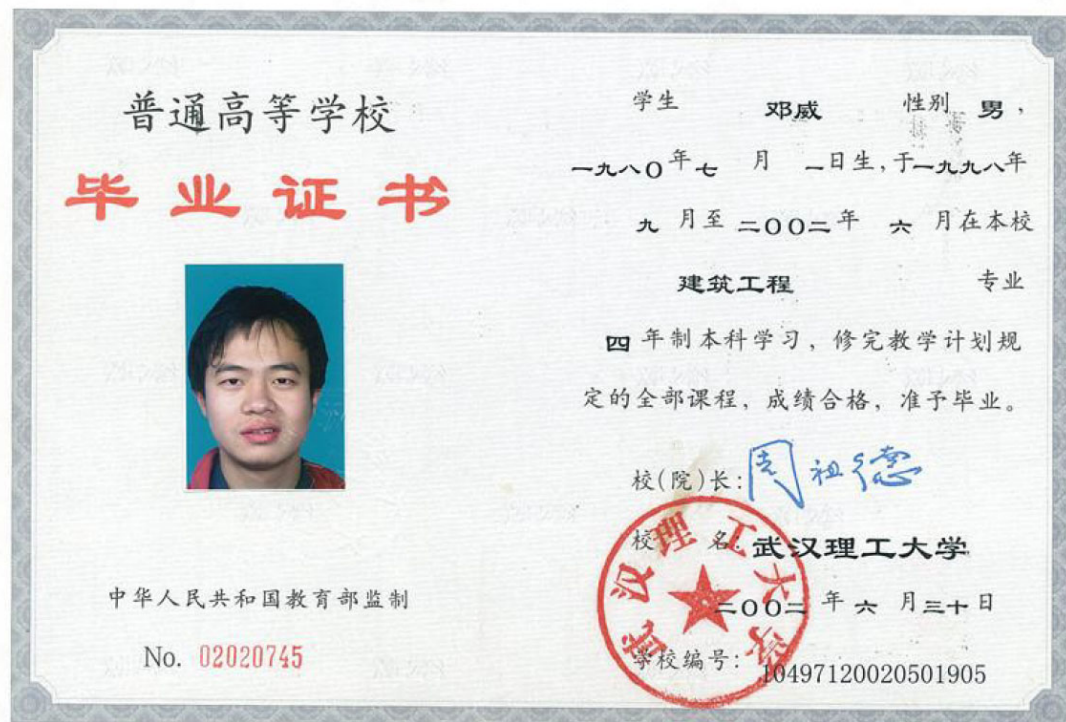 普通高等学校
毕业证书
中华人民共和国教育部监制
No. 02020745
学生 邓威 性别 男，
一九八〇年七月一日生，于一九九八年
九月至二〇〇二年六月在本校
建筑工程 专业
四年制本科学习，修完教学计划规
定的全部课程，成绩合格，准予毕业。
校(院)长：周祖德
校名：武汉理工大学
二〇〇二年六月三十日
学校编号：10497120020501905
武汉理工大学